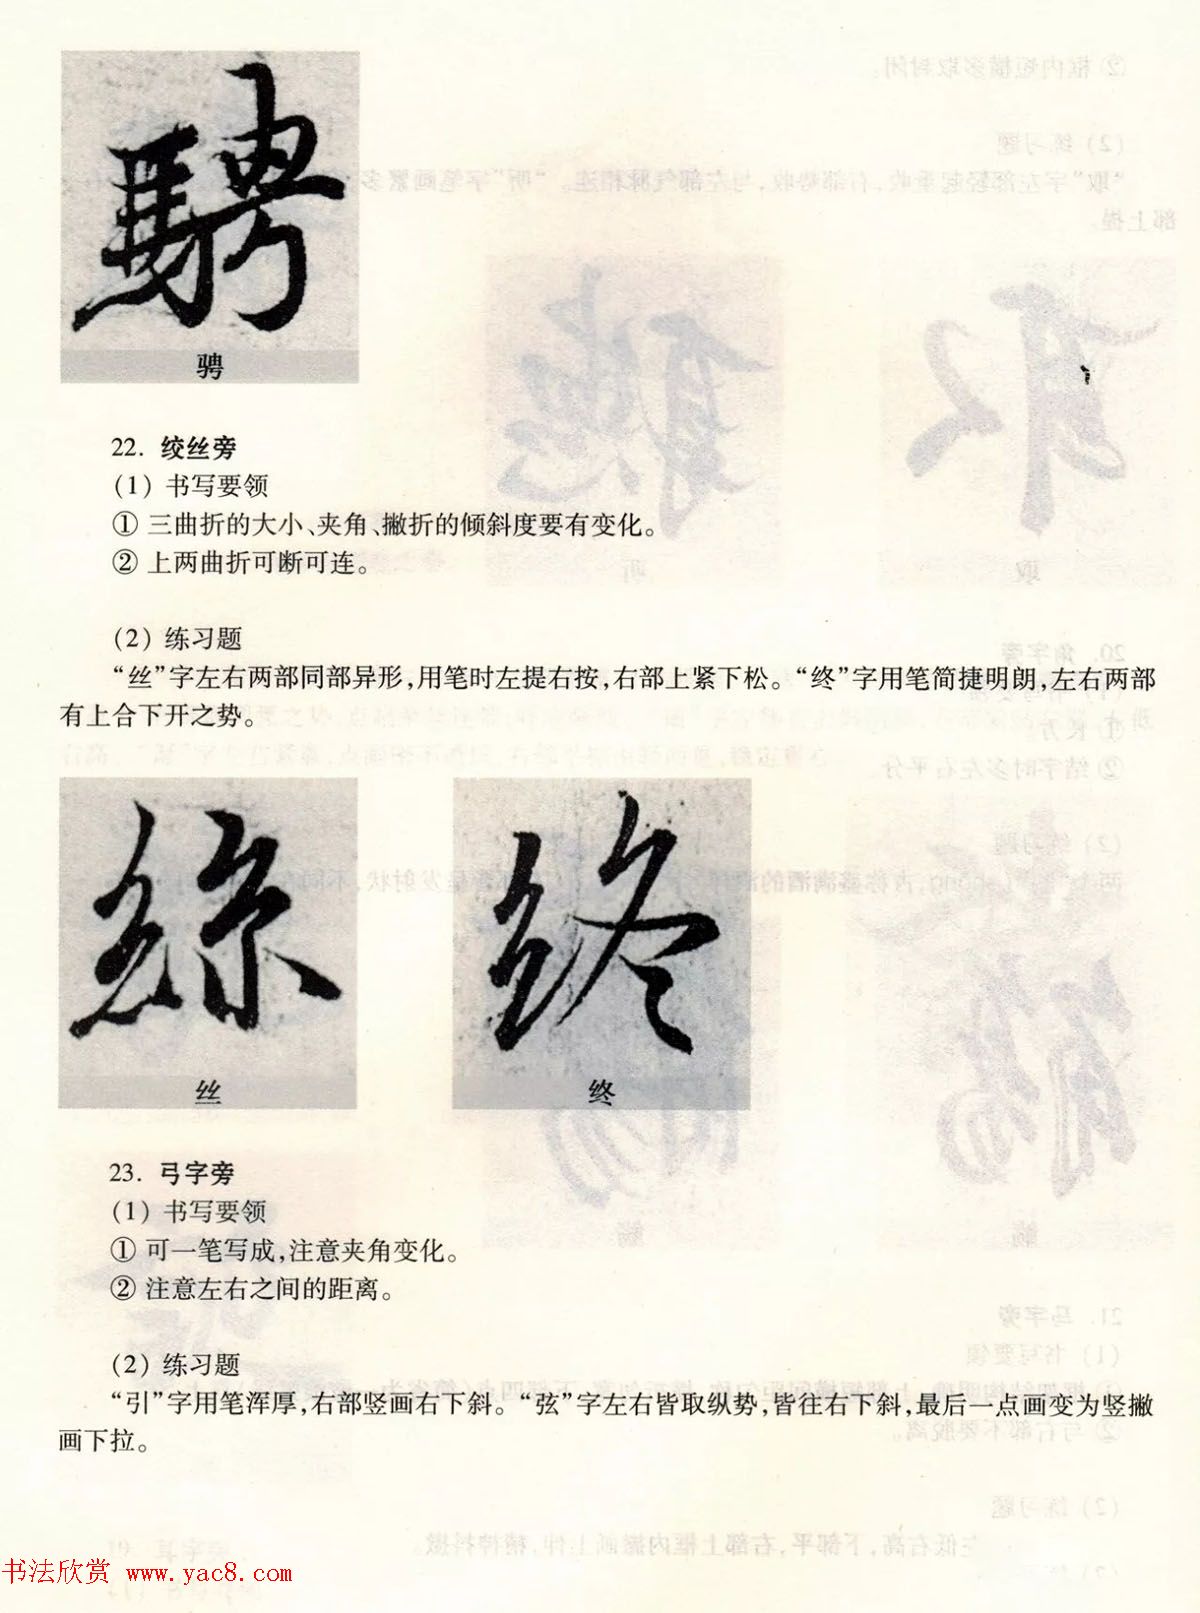 騁
骋
22. 绞丝旁
(1) 书写要领
① 三曲折的大小、夹角、撇折的倾斜度要有变化。
② 上两曲折可断可连。
(2) 练习题
“丝”字左右两部同部异形,用笔时左提右按,右部上紧下松。“终”字用笔简捷明朗,左右两部
有上合下开之势。
絲 終
丝 终
23. 弓字旁
(1) 书写要领
① 可一笔写成,注意夹角变化。
② 注意左右之间的距离。
(2) 练习题
“引”字用笔浑厚,右部竖画右下斜。“弦”字左右皆取纵势,皆往右下斜,最后一点画变为竖撇
画下拉。
书法欣赏 www.yac8.com